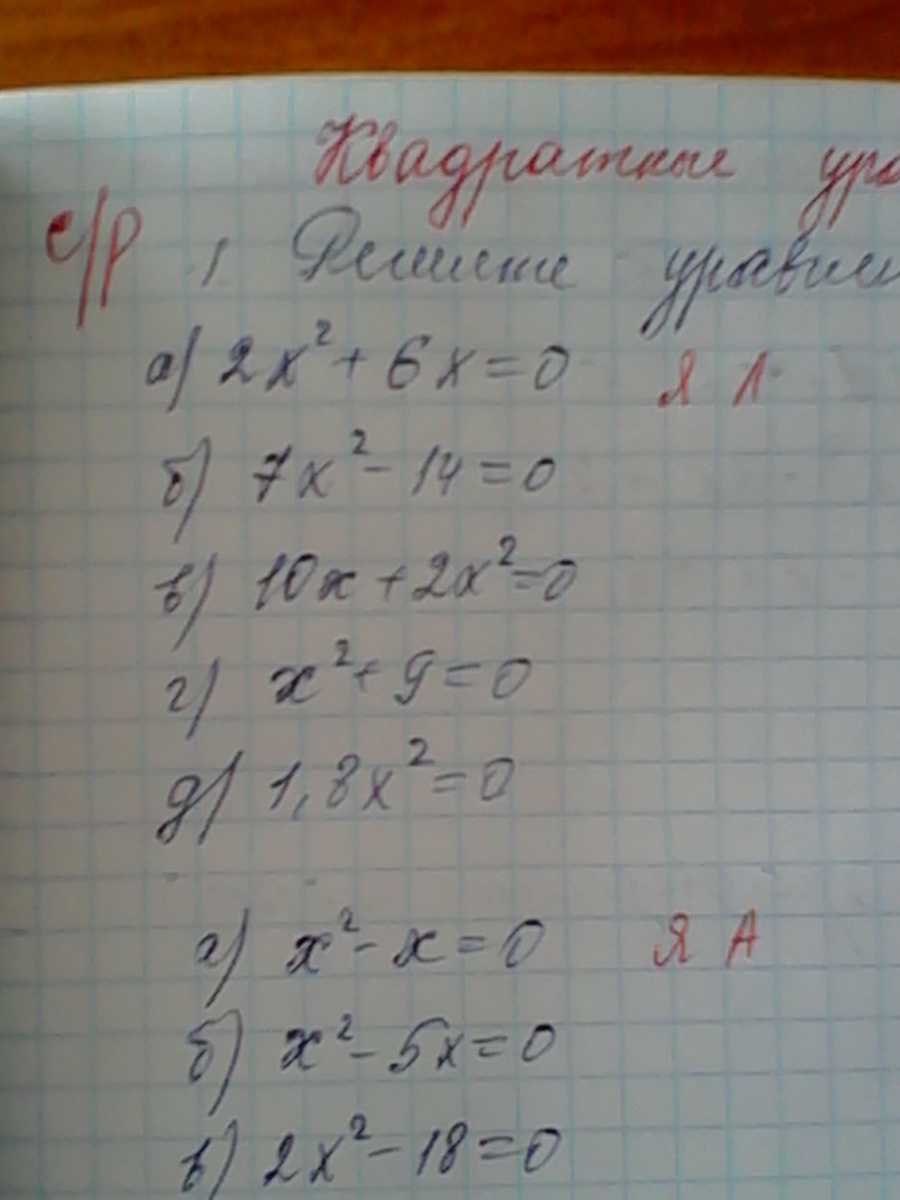 Квадратные ура
с/р 1. Решите уравнен
а) 2x² + 6x = 0 Я Л
б) 7x² - 14 = 0
в) 10x + 2x² = 0
г) x² + 9 = 0
д) 1,8x² = 0
а) x² - x = 0 Я А
б) x² - 5x = 0
в) 2x² - 18 = 0